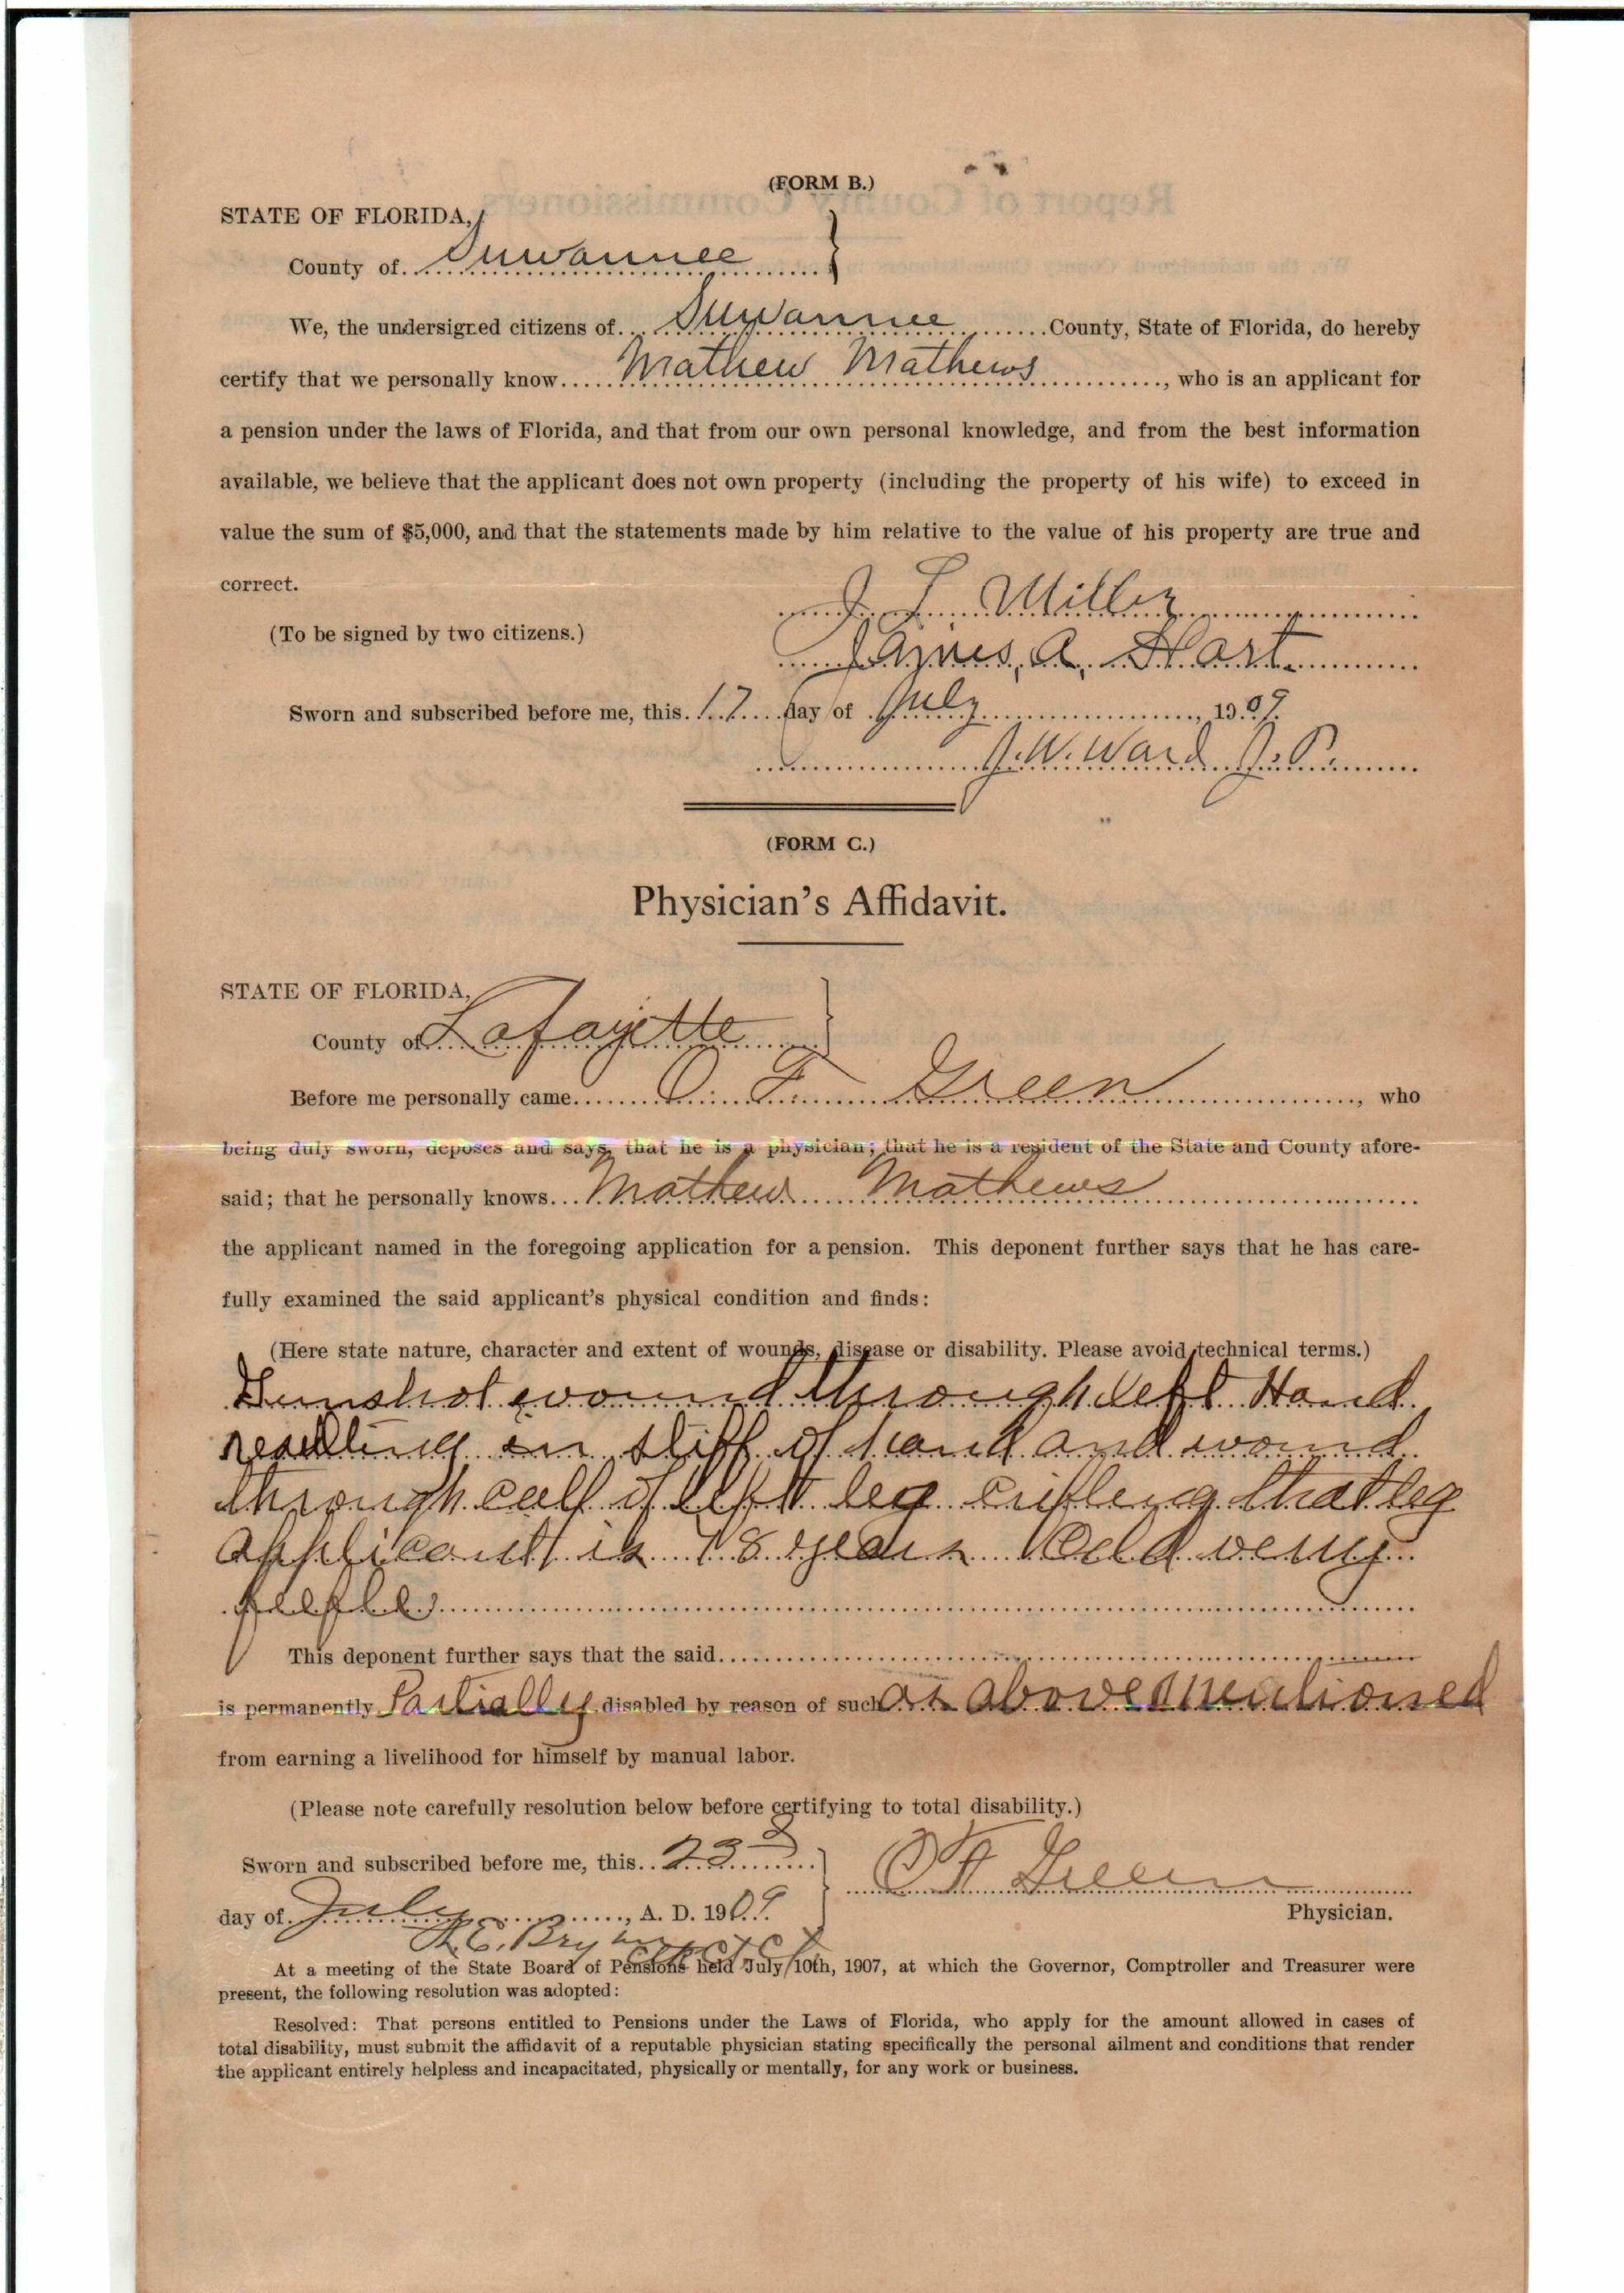 (FORM B.)
STATE OF FLORIDA,
County of Suwannee
We, the undersigned citizens of Suwannee County, State of Florida, do hereby
certify that we personally know Mathew Mathews, who is an applicant for
a pension under the laws of Florida, and that from our own personal knowledge, and from the best information
available, we believe that the applicant does not own property (including the property of his wife) to exceed in
value the sum of $5,000, and that the statements made by him relative to the value of his property are true and
correct.
J L Miller
(To be signed by two citizens.)
James, A, Hart
Sworn and subscribed before me, this 17 day of July, 1909.
J. W. Ward J. P.
(FORM C.)
Physician's Affidavit.
STATE OF FLORIDA,
County of Lafayette
Before me personally came O. F. Green, who
being duly sworn, deposes and says, that he is a physician; that he is a resident of the State and County afore-
said; that he personally knows Mathew Mathews
the applicant named in the foregoing application for a pension. This deponent further says that he has care-
fully examined the said applicant's physical condition and finds:
(Here state nature, character and extent of wounds, disease or disability. Please avoid technical terms.)
Gunshot wound through left Hand
resulting in stiff of hand and wound
through calf of left leg that leg
applicant is 78 years Old very
This deponent further says that the said
is permanently Partially disabled by reason of such as above mentioned
from earning a livelihood for himself by manual labor.
(Please note carefully resolution below before certifying to total disability.)
Sworn and subscribed before me, this 23d
O F Green
day of July, A. D. 1909.
Physician.
R. E. Bryan
At a meeting of the State Board of Pensions held July 10th, 1907, at which the Governor, Comptroller and Treasurer were
present, the following resolution was adopted:
Resolved: That persons entitled to Pensions under the Laws of Florida, who apply for the amount allowed in cases of
total disability, must submit the affidavit of a reputable physician stating specifically the personal ailment and conditions that render
the applicant entirely helpless and incapacitated, physically or mentally, for any work or business.